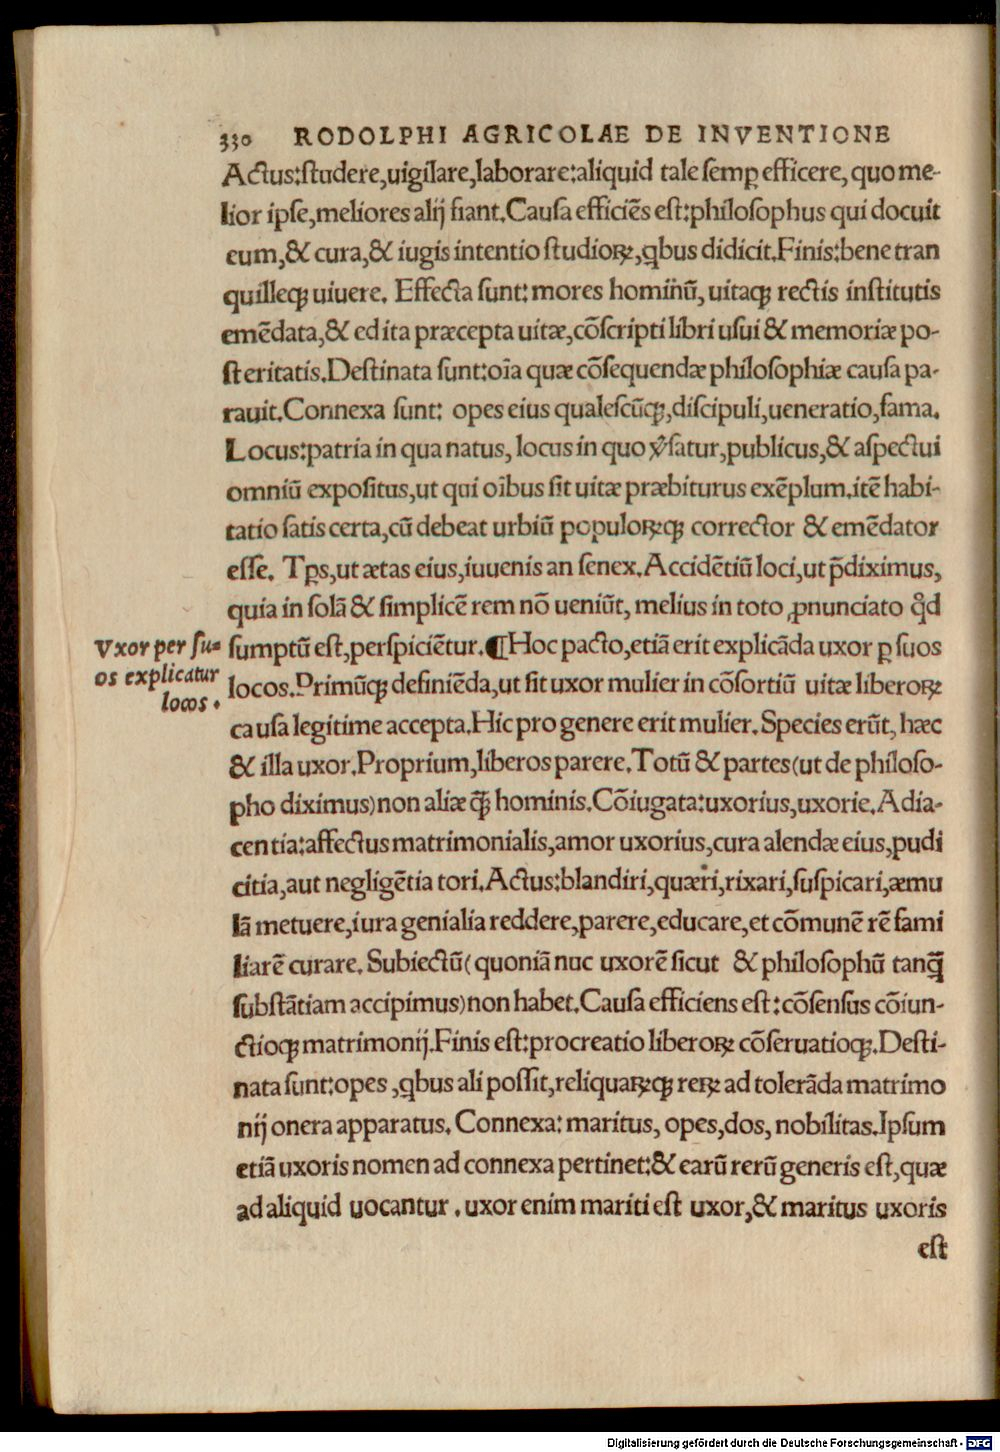 330 RODOLPHI AGRICOLAE DE INVENTIONE
Actus:ſtudere,uigilare,laborare:aliquid tale ſemꝑ efficere, quo me-
lior ipſe,meliores alij fiant.Cauſa efficiēs eſt:philoſophus qui docuit
eum,& cura,& iugis intentio ſtudioꝝ,ꝗbus didicit.Finis:bene tran
quilleqꝫ uiuere. Effecta ſunt: mores hominū, uitaqꝫ rectis inſtitutis
emēdata,& edita præcepta uitæ,cōſcripti libri uſui & memoriæ po-
ſteritatis.Deſtinata ſunt:oīa quæ cōſequendæ philoſophiæ cauſa pa-
rauit.Connexa ſunt: opes eius qualeſcūqꝫ,diſcipuli,ueneratio,fama.
Locus:patria in qua natus, locus in quo ꝟſatur,publicus,& aſpectui
omniū expoſitus,ut qui oībus ſit uitæ præbiturus exēplum.itē habi-
tatio ſatis certa,cū debeat urbiū populoꝝqꝫ corrector & emēdator
eſſe. Tꝑs,ut ætas eius,iuuenis an ſenex.Accidētiū loci,ut p̄diximus,
quia in ſolā & ſimplicē rem nō ueniūt, melius in toto ꝓnunciato qͥd
ſumptū eſt,perſpiciētur.¶Hoc pacto,etiā erit explicāda uxor ꝑ ſuos
locos.Primūqꝫ definiēda,ut ſit uxor mulier in cōſortiū uitæ liberoꝝ
cauſa legitime accepta.Hic pro genere erit mulier.Species erūt, hæc
& illa uxor.Proprium,liberos parere.Totū & partes(ut de philoſo-
pho diximus)non aliæ q̄ꝫ hominis.Cōiugata:uxorius,uxorie.Adia-
centia:affectus matrimonialis,amor uxorius,cura alendæ eius,pudi
citia,aut negligētia tori.Actus:blandiri,quæri,rixari,ſuſpicari,æmu
lā metuere,iura genialia reddere,parere,educare,et cōmunē rē fami
liarē curare.Subiectū(quoniā nuc uxorē ſicut & philoſophū tanq̄ꝫ
ſubſtātiam accipimus)non habet.Cauſa efficiens eſt:cōſenſus cōiun-
ctioqꝫ matrimonij.Finis eſt:procreatio liberoꝝ cōſeruatioqꝫ.Deſti-
nata ſunt:opes ,ꝗbus ali poſſit,reliquaꝝqꝫ reꝝ ad tolerāda matrimo
nij onera apparatus. Connexa: maritus, opes,dos, nobilitas.Ipſum
etiā uxoris nomen ad connexa pertinet:& earū rerū generis eſt,quæ
ad aliquid uocantur . uxor enim mariti eſt uxor,& maritus uxoris
eſt
Vxor per ſu=
os explicatur
locos .
Digitalisierung gefördert durch die Deutsche Forschungsgemeinschaft - DFG